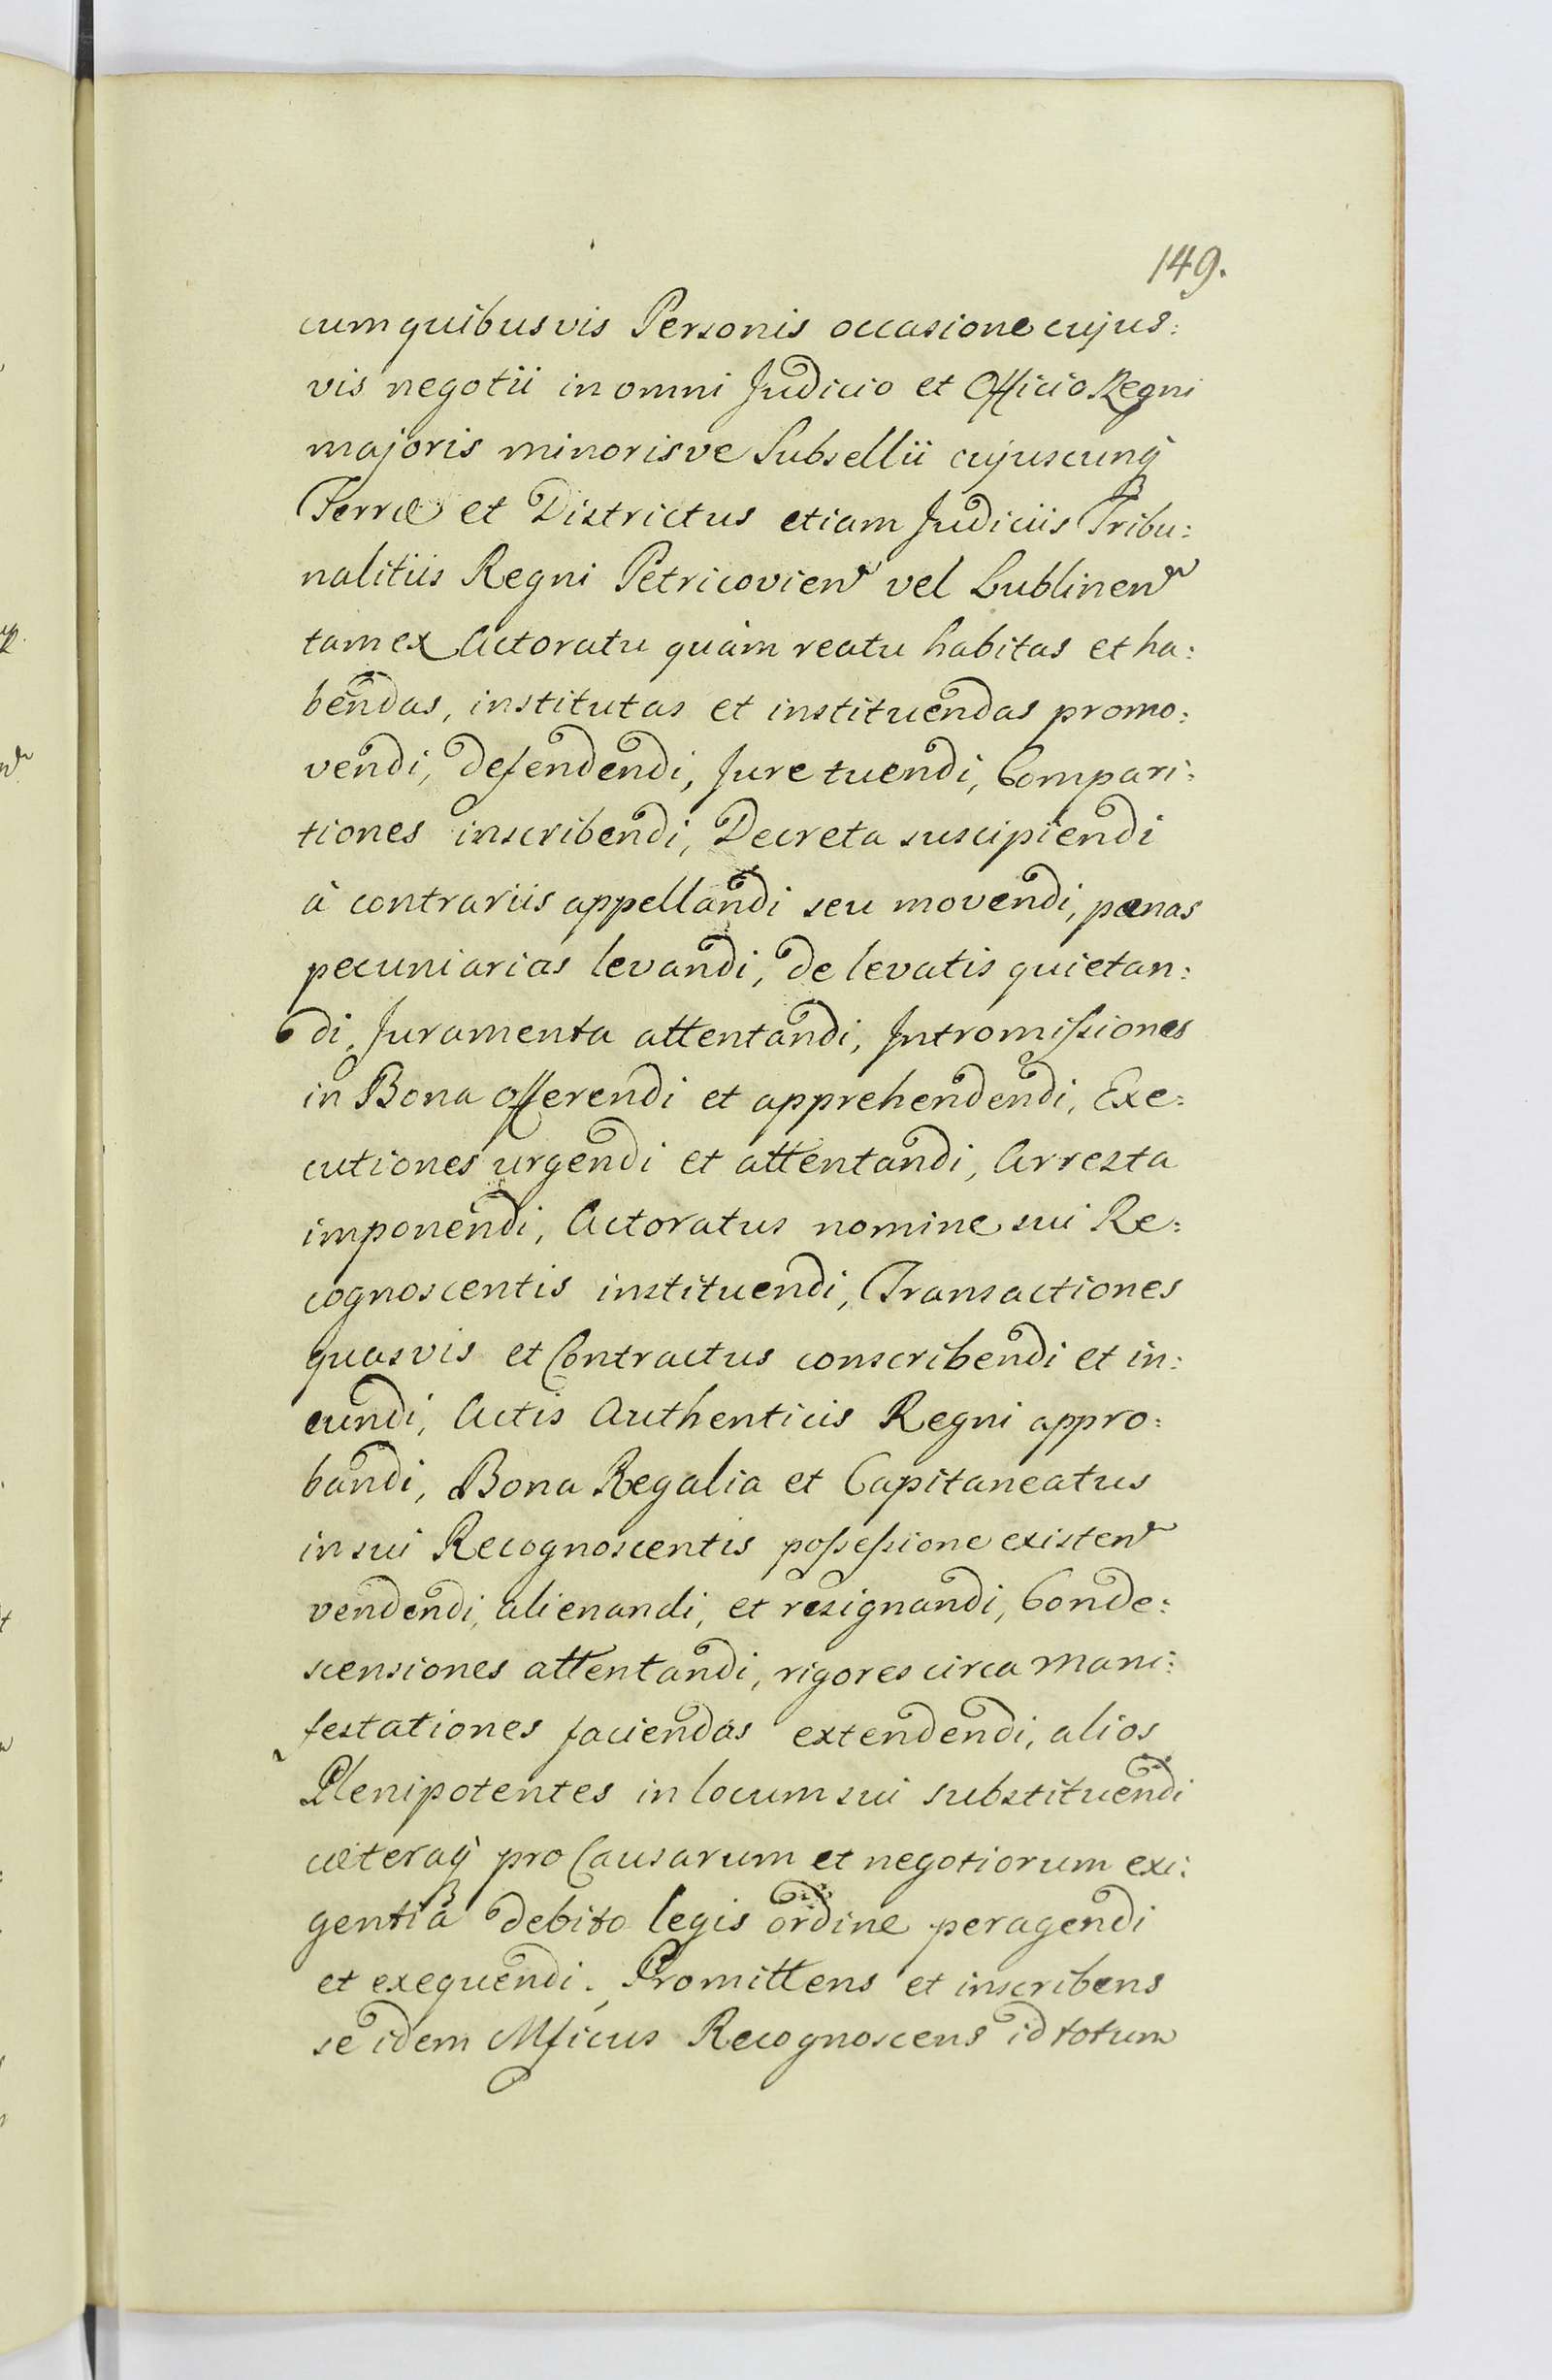 149.
cum quibusvis Personis occasione cujus:
vis negotii in omni Judicio et Officio Regni
majoris minorisve Subsellii cujuscunq̃
Terræ et Districtus etiam Judiciis Tribu:
nalitiis Regni Petricovien vel Lublinen
tam ex Actoratu quàm reatu habitas et ha:
bendas, institutas et instituendas promo:
vendi, defendendi, Jure tuendi, Compari:
tiones inscribendi, Decreta suscipiendi
à contrariis appellandi seu movendi, pœnas
pecuniarias levandi, de levatis quietan:
di, Juramenta attentandi, Intromiſsiones
in Bona offerendi et apprehendendi, Exe:
cutiones urgendi et attentandi, Arresta
imponendi, Actoratus nomine sui Re:
cognoscentis instituendi, Transactiones
quasvis et Contractus conscribendi et in:
eundi, Actis Authenticis Regni appro:
bandi, Bona Regalia et Capitaneatus
in sui Recognoscentis poſseſsione existen
vendendi, alienandi, et resignandi, Conde:
scensiones attentandi, rigores circa Mani:
festationes faciendas extendendi, alios
Plenipotentes in locum sui substituendi
cæteraq̃ pro Causarum et negotiorum exi:
gentiâ debito legis ordine peragendi
et exequendi. Promittens et inscribens
se idem Mficus Recognoscens id totum